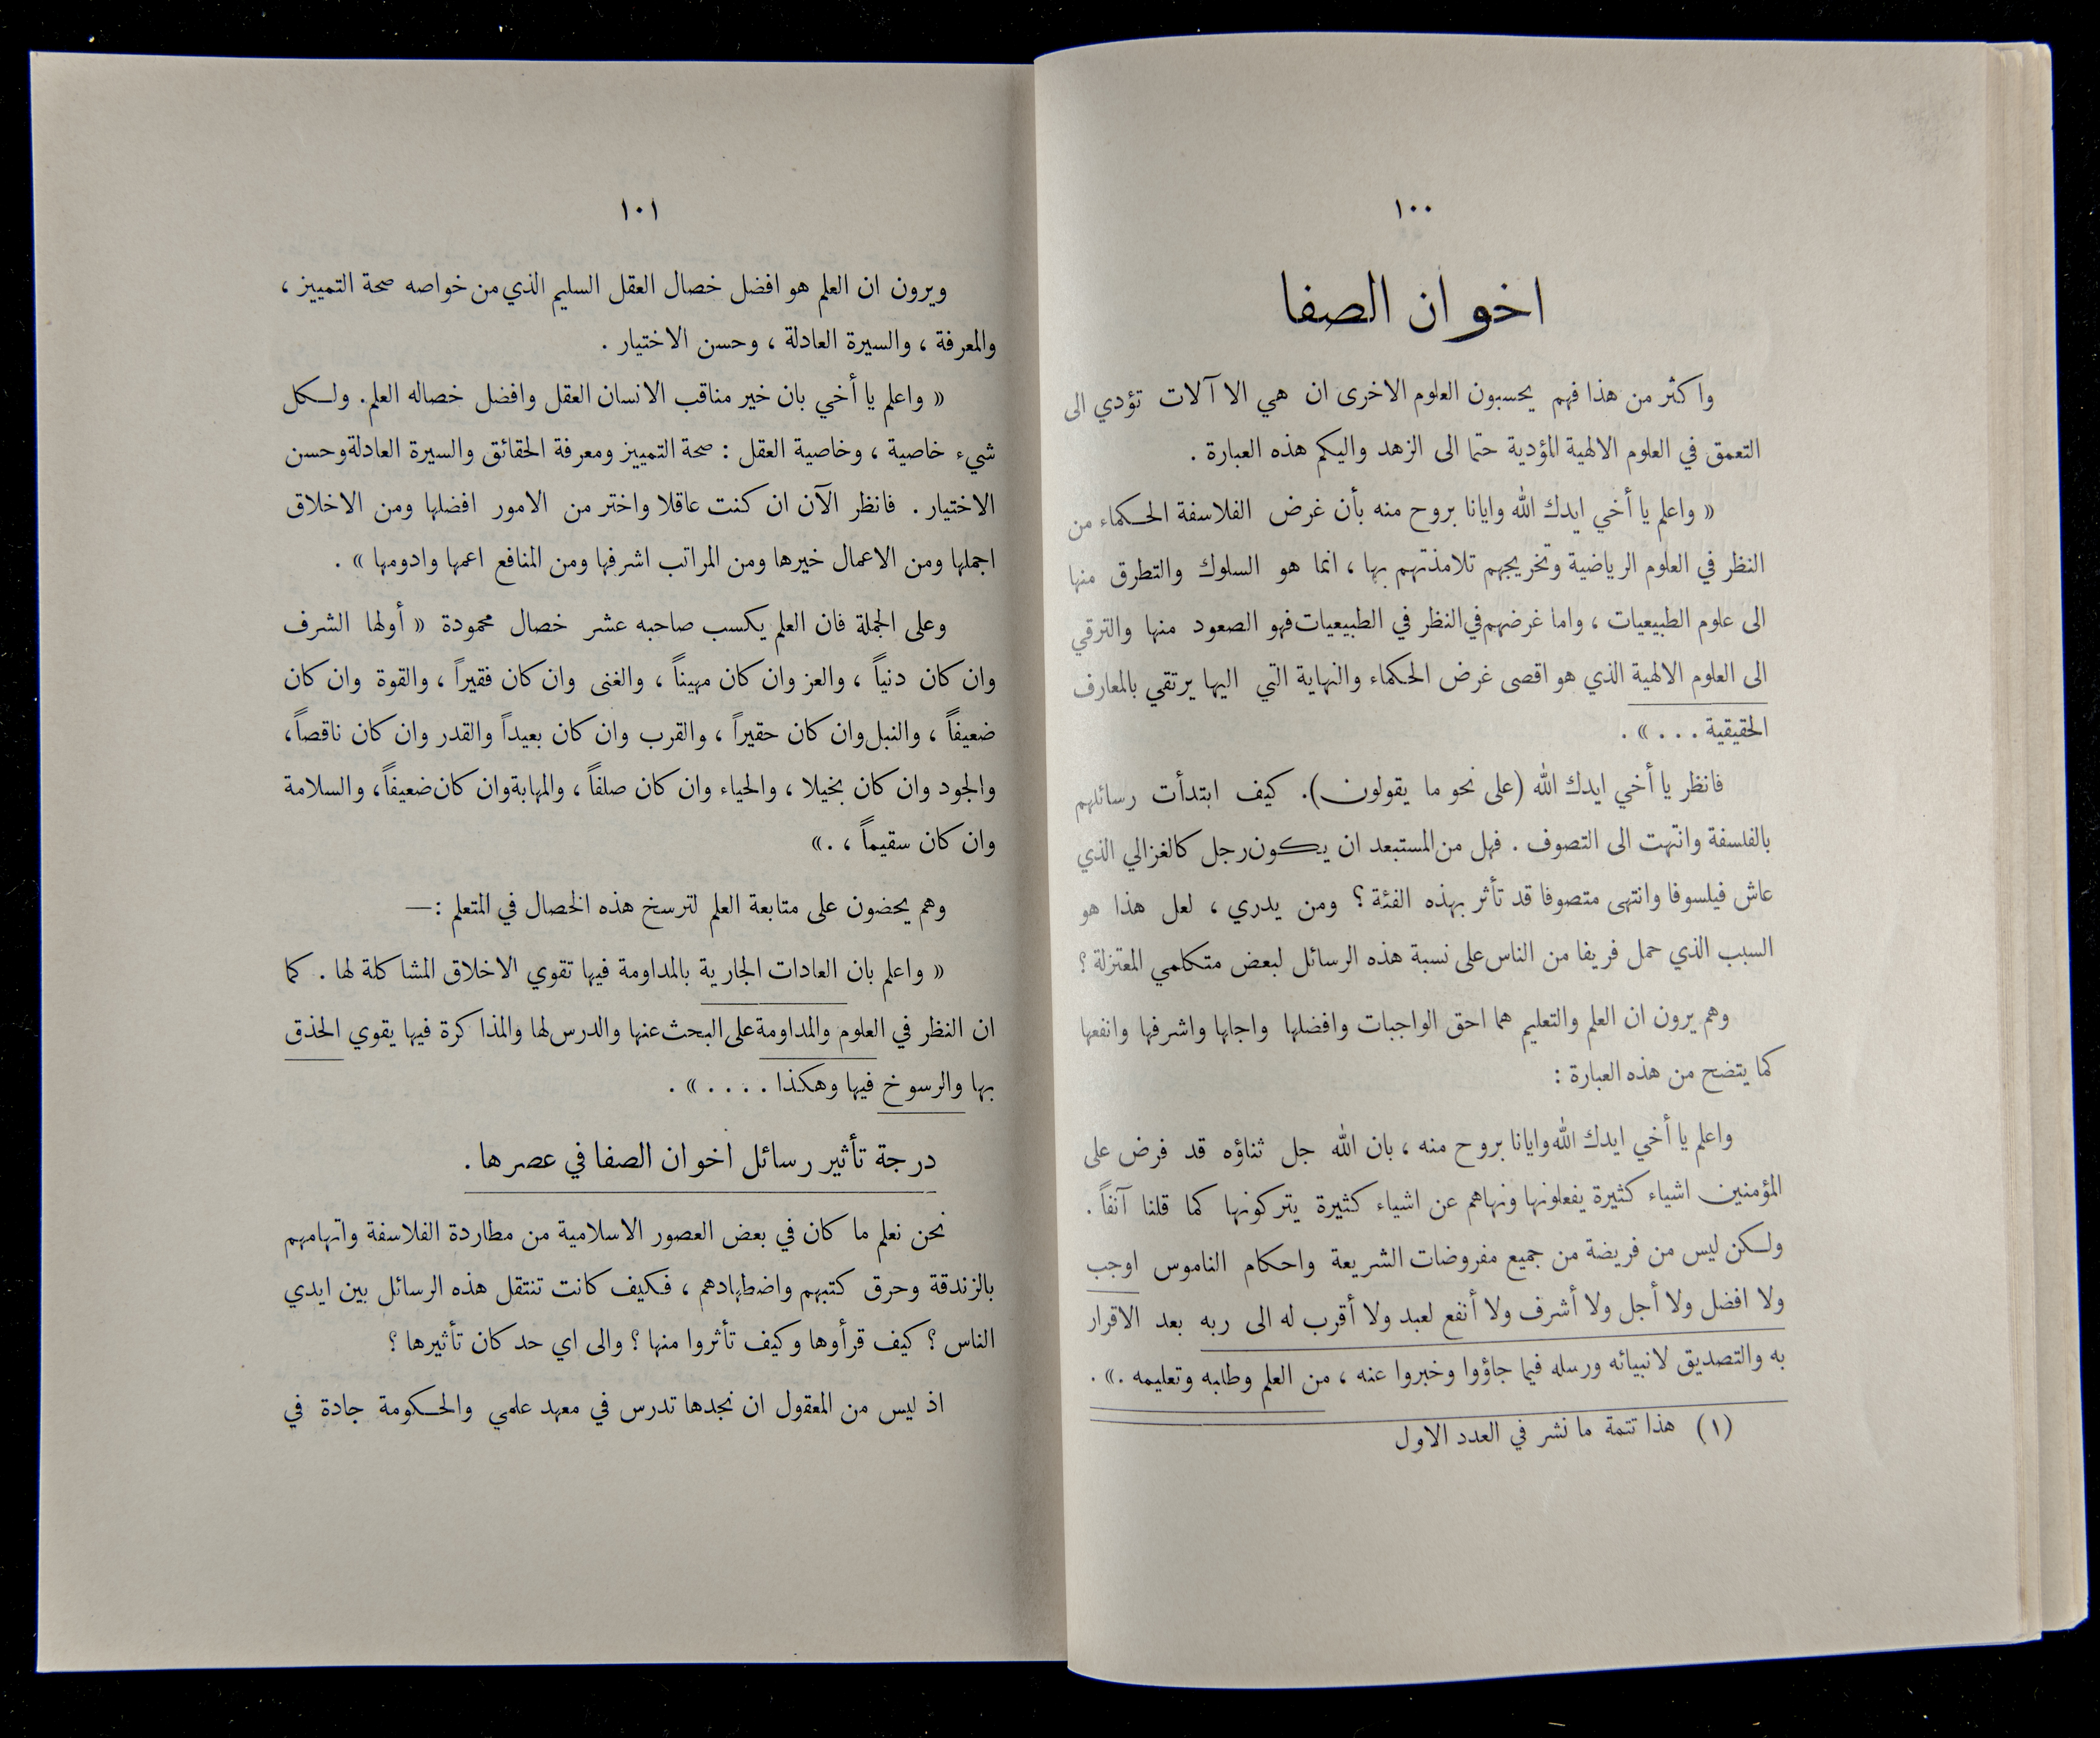 ١٠٠
اخوان الصفا
واكثر من هذا فهم يحسبون العلوم الاخرى ان هي الا آلات تؤدي الى
التعمق في العلوم الالهية المؤدية حتما الى الزهد واليكم هذه العبارة .
« واعلم يا أخي ايدك الله وايانا بروح منه بأن غرض الفلاسفة الحكماء من
النظر في العلوم الرياضية وتخريجهم تلامذتهم بها ، انما هو السلوك والتطرق منها
الى علوم الطبيعيات ، واما غرضهم في النظر في الطبيعيات فهو الصعود منها والترقي
الى العلوم الالهية الذي هو اقصى غرض الحكماء والنهاية التي اليها يرتقي بالمعارف
الحقيقية . . . » .
فانظر يا أخي ايدك الله (على نحو ما يقولون). كيف ابتدأت رسائلهم
بالفلسفة وانتهت الى التصوف . فهل من المستبعد ان يكون رجل كالغزالي الذي
عاش فيلسوفا وانتهى متصوفا قد تأثر بهذه الفئة ؟ ومن يدري ، لعل هذا هو
السبب الذي حمل فريقا من الناس على نسبة هذه الرسائل لبعض متكلمي المعتزلة ؟
وهم يرون ان العلم والتعليم هما احق الواجبات وافضلها واجلها واشرفها وانفعها
كما يتضح من هذه العبارة :
واعلم يا أخي ايدك الله وايانا بروح منه ، بان الله جل ثناؤه قد فرض على
المؤمنين اشياء كثيرة يفعلونها ونهاهم عن اشياء كثيرة يتركونها كما قلنا آنفاً .
ولكن ليس من فريضة من جميع مفروضات الشريعة واحكام الناموس اوجب
ولا افضل ولا أجل ولا أشرف ولا أنفع لعبد ولا أقرب له الى ربه بعد الاقرار
به والتصديق لانبيائه ورسله فيما جاؤوا وخبروا عنه ، من العلم وطلبه وتعليمه .» .
(١) هذا تتمة ما نشر في العدد الاول
١٠١
ويرون ان العلم هو افضل خصال العقل السليم الذي من خواصه صحة التمييز ،
والمعرفة ، والسيرة العادلة ، وحسن الاختيار .
« واعلم يا أخي بان خير مناقب الانسان العقل وافضل خصاله العلم. ولكل
شيء خاصية ، وخاصية العقل : صحة التمييز ومعرفة الحقائق والسيرة العادلة وحسن
الاختيار . فانظر الآن ان كنت عاقلا واختر من الامور افضلها ومن الاخلاق
اجملها ومن الاعمال خيرها ومن المراتب اشرفها ومن المنافع اعمها وادومها » .
وعلى الجملة فان العلم يكسب صاحبه عشر خصال محمودة « أولها الشرف
وان كان دنياً ، والعز وان كان مهيناً ، والغنى وان كان فقيراً ، والقوة وان كان
ضعيفاً ، والنبل وان كان حقيراً ، والقرب وان كان بعيداً والقدر وان كان ناقصاً،
والجود وان كان بخيلا ، والحياء وان كان صلفاً ، والمهابة وان كان ضعيفاً، والسلامة
وان كان سقيماً ، .»
وهم يحضون على متابعة العلم لترسخ هذه الخصال في المتعلم :—
« واعلم بان العادات الجارية بالمداومة فيها تقوي الاخلاق المشاكلة لها . كما
ان النظر في العلوم والمداومة على البحث عنها والدرس لها والمذاكرة فيها يقوي الحذق
بها والرسوخ فيها وهكذا . . . . » .
درجة تأثير رسائل اخوان الصفا في عصرها .
نحن نعلم ما كان في بعض العصور الاسلامية من مطاردة الفلاسفة واتهامهم
بالزندقة وحرق كتبهم واضطهادهم ، فكيف كانت تنتقل هذه الرسائل بين ايدي
الناس ؟ كيف قرأوها وكيف تأثروا منها ؟ والى اي حد كان تأثيرها ؟
اذ ليس من المعقول ان نجدها تدرس في معهد علمي والحكومة جادة في